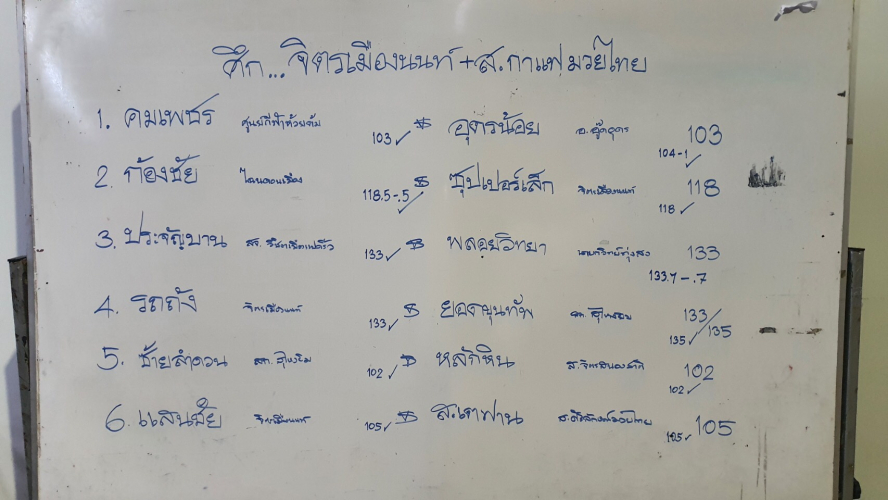 ศึก...จิตรเมืองนนท์+ส.กาแฟมวยไทย
1. คมเพชร 103✓ อุดรน้อย อ.อู๊ดอุดร 103
104-1✓
2. ก้องชัย ไฉนดอนเมือง 118.5-.5✓ ซุปเปอร์เล็ก จิตรเมืองนนท์ 118
118✓
3. ประจัญบาน 133✓ พลอยวิทยา 133
133.7-.7
4. รถถัง จิตรเมืองนนท์ 133✓ ยอดขุนทัพ 133/135
135✓
5. ซ้ายลำดวน 102✓ หลักหิน 102
102✓
6. แสนชัย จิตรเมืองนนท์ 105✓ สะเตฟาน 105✓ 105